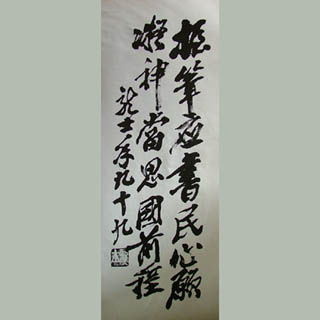 振筆應書民心願
凝神當思國前程
龍士年九十九